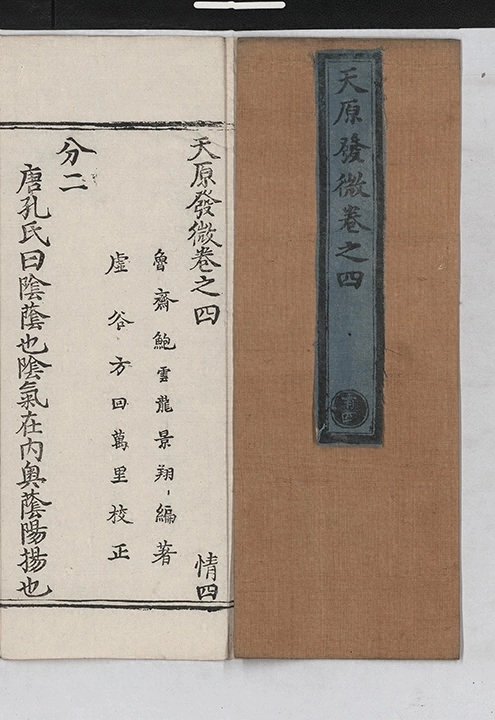 天原發微卷之四
情四
天原發微卷之四
情四
魯齋鮑雲龍景翔編著
虛谷方回萬里校正
分二
唐孔氏曰陰蔭也陰氣在內奧蔭陽揚也